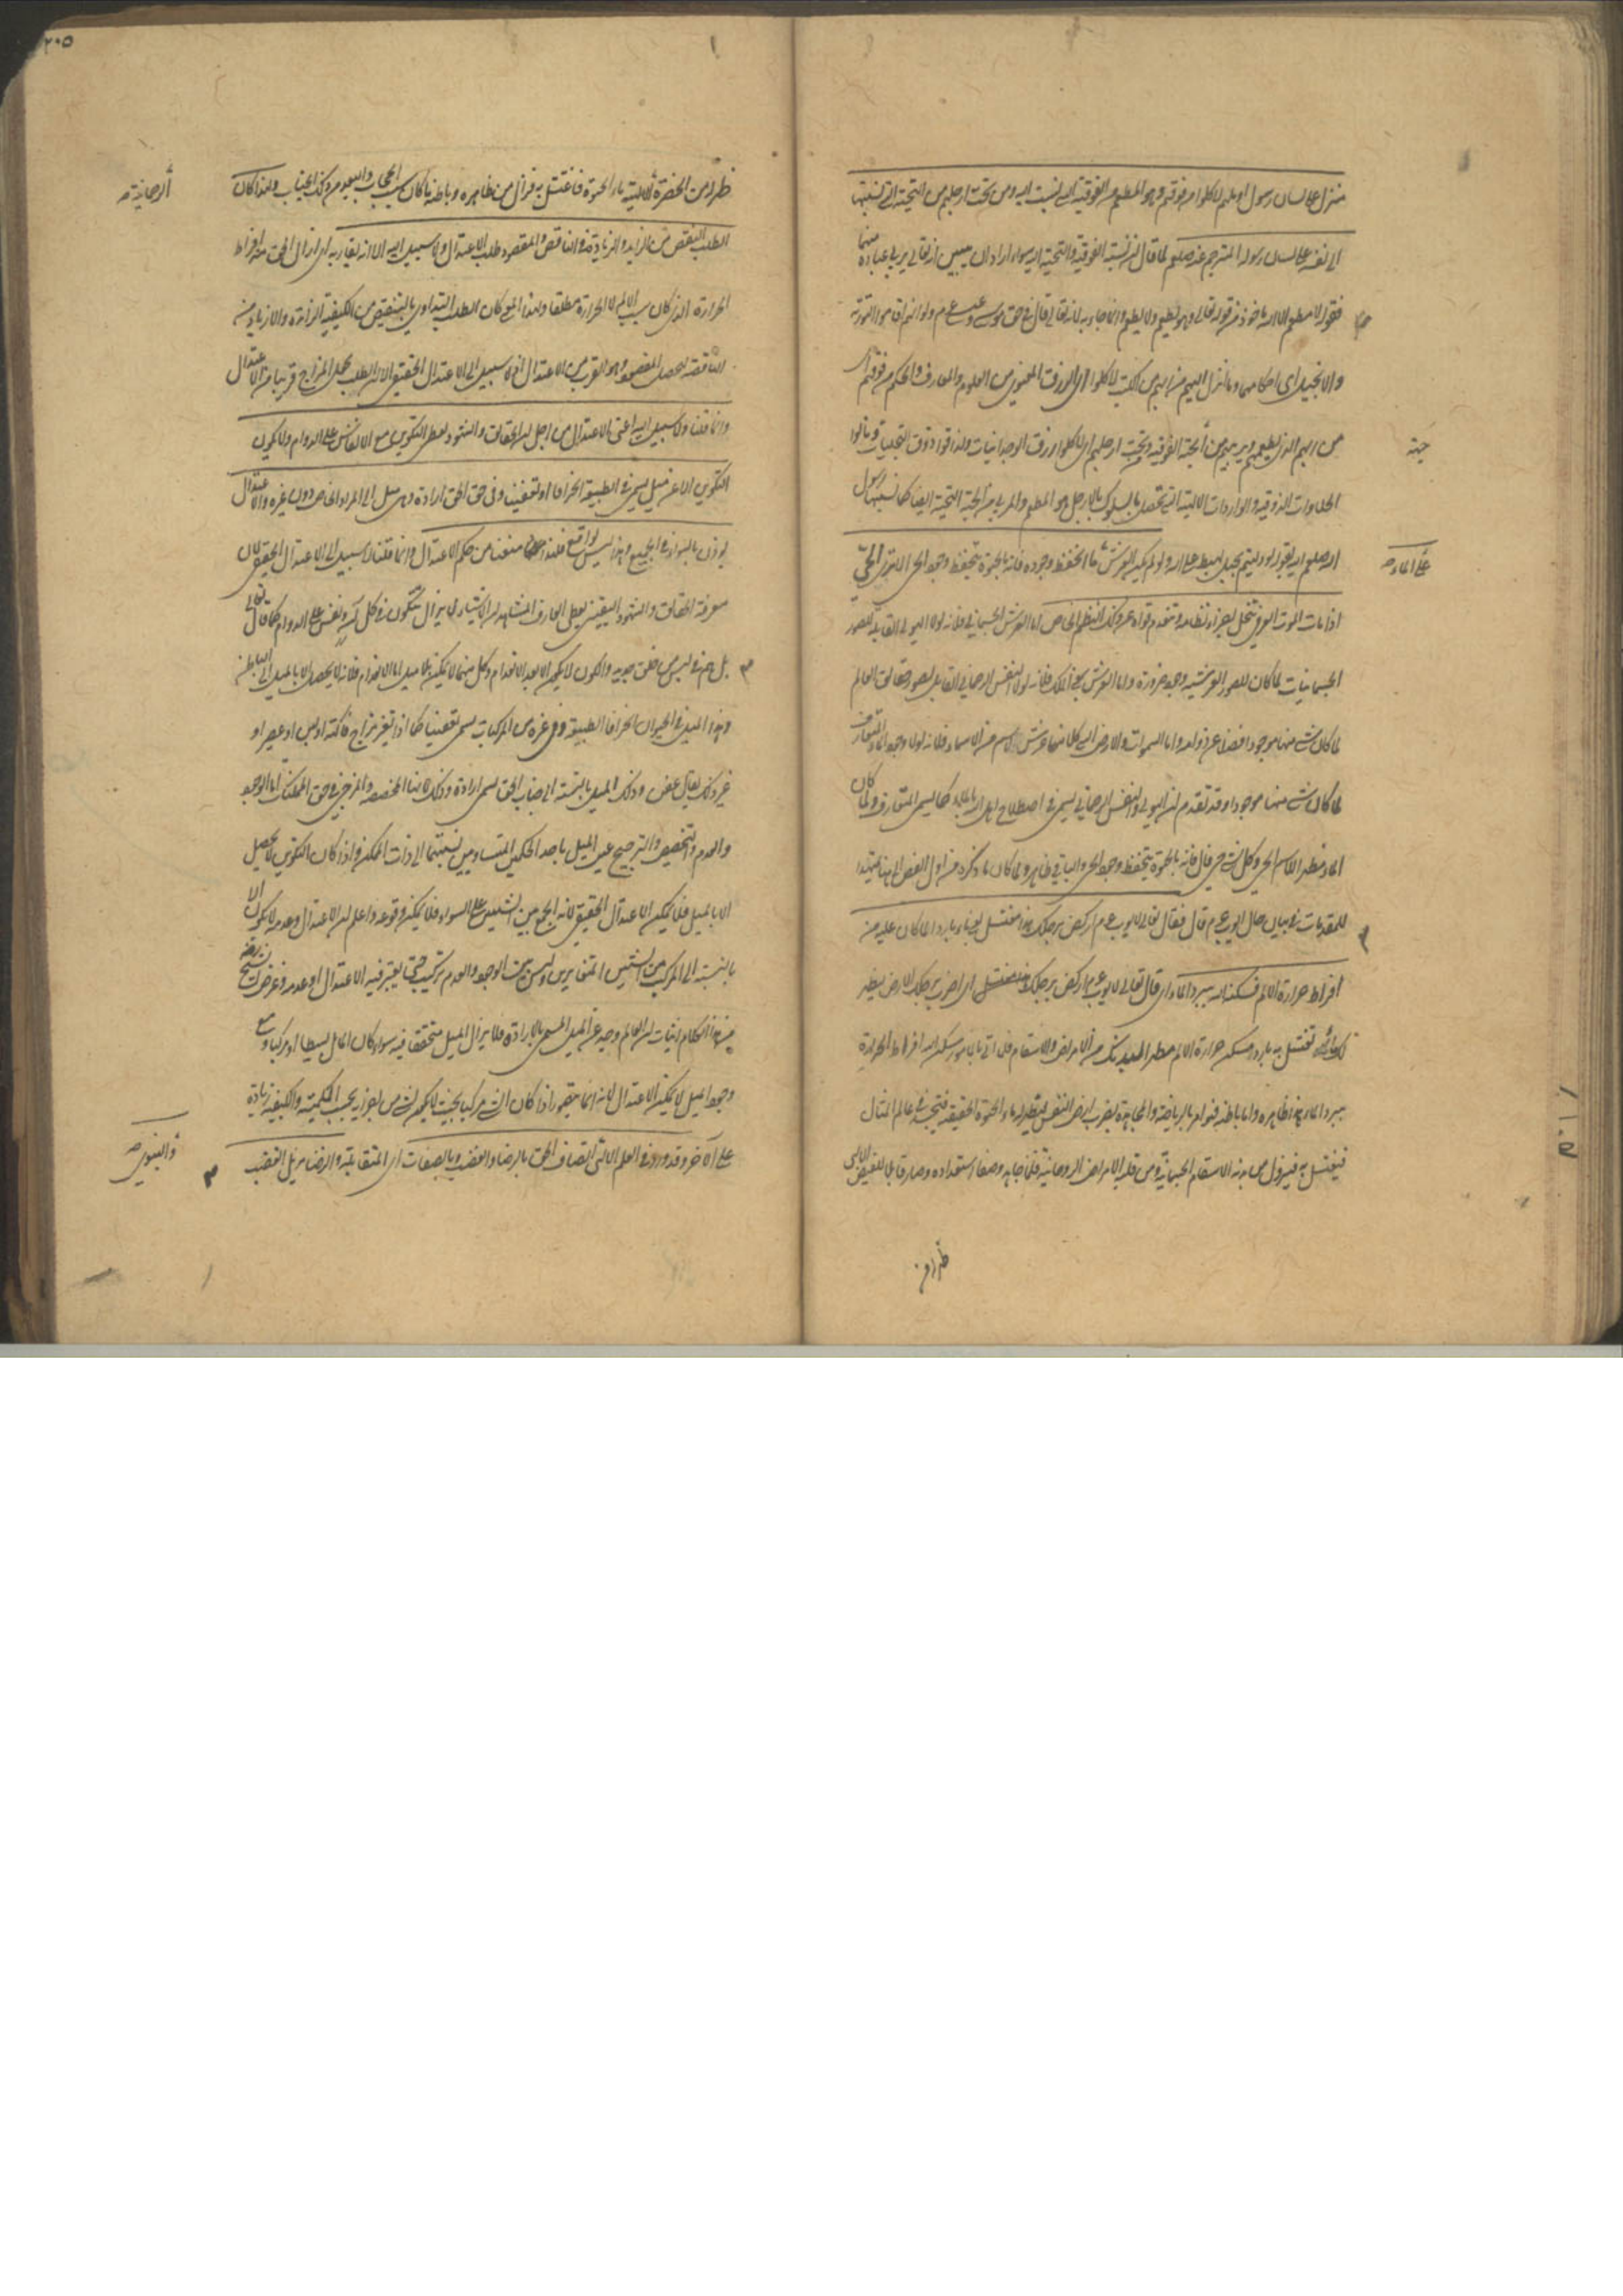 منزل على لسان رسول او ملهم لاكلوا من فوقهم وهو المطعم من الفوقية التي نسبت اليه ومن تحت ارجلهم من التحتية التي نسبتها
الى نفسه على لسان رسوله المترجم عنه صلعم لما قال نسبة الفوقية والتحتية اليه سواء اراد ان يبين انه تعالى يربى عباده منهما
فقوله لا مطعم الا الله ماخوذ من قوله تعالى وهو يطعم ولا يطعم وانما جاء به لانه تعالى قال في حق موسى وعيسى ع م ولو انهم اقاموا التورية
والانجيل اى احكامهما وما انزل اليهم من ربهم من الكتب لاكلوا اى الرزق المعنوى من العلوم والمعارف والحكم من فوقهم اى
من ربهم الذى يطعمهم ويربهم من الجهة الفوقية ومن تحت ارجلهم اى لاكلوا رزق الوجدانيات ولذاقوا ذوق التجليات ونالوا
جهة
الحلاوات الذوقية والواردات الالهية التى تحصل بالسلوك بالارجل هو المطعم والمربى من الجهة التحتية ايضا كما نسبها رسول
الله صلعم اليه بقوله لو دليتم بحبل لهبط على الله ولو لم يكن العرش ما انحفظ وجوده فانه بالحيوة ينحفظ وجود الحى الا ترى الحى
على الماء صح
اذا مات الموت العرفى تنحل اجزاء نظامه وتنعدم قواه عن ذلك النظم الخاص اما العرش الجسمانى فلانه لولا الهيولى القابلة لصور
الجسمانيات لما كان للصور العرشية وجود ضرورة واما العرش بمعنى الملك فلانه لولا النفس الرحمانى القابل لصور حقائق العالم
لما كان شئ منها موجودا فضلا عن ذواته واما السموات والارض التى كل منها عرش لاسم من الاسماء فلانه لولا وجود الماء المتعارف
لما كان شئ منها موجودا وقد تقدم ان الهيولى والنفس الرحمانى يسمى فى اصطلاح اهل الله بالماء كما يسمى المتعارف ولما كان
الماء مظهر الاسم الحى وكل شئ حى قال فانه بالحيوة ينحفظ وجود الحى والباقى ظاهر ولما كان ما ذكره من اول الفص الى هنا تمهيدا
للمقدمات فى بيان حال ايوب ع م قال فقال تعالى لايوب ع م اركض برجلك هذا مغتسل يعنى ماء بارد لما كان عليه من
افراط حرارة الالم فسكنه الله ببرد الماء اى قال تعالى لايوب ع م اركض برجلك هذا مغتسل اى اضرب برجلك الارض ليظهر
لك ماء تغتسل به بارد مسكن حرارة الالم مطهر لبدنك من الامراض والاسقام فلما اتى بالمامور سكن الله افراط الحرارة
ببرد الماء هذا ظاهره واما باطنه فهو امر بالرياضة والمجاهدة بضرب ارض النفس ليظهر له ماء الحيوة الحقيقية متجسدة فى عالم المثال
فيغتسل به فيزول من بدنه الاسقام الجسمانية ومن قلبه الامراض الروحانية فلما جاهد وصفا استعداده وصار قابلا للفيض الالهى
ظهر له من
٢٠٥
ظهر له من الحضرة الالهية ماء الحيوة فاغتسل به فزال من ظاهره وباطنه ما كان سبب الحجاب والبعد من ذلك الجناب ولهذا كان
الرحمانية صح
الطب النقص من الزايد والزيادة فى الناقص والمقصود طلب الاعتدال ولا سبيل اليه الا انه يقاربه اى ازال الحق منه افراط
الحرارة الذى كان سبب الالم لا الحرارة مطلقا ولهذا المعنى كان الطب التداوى بالتنقيص من الكيفية الزائدة والازدياد من
الناقصة ليحصل المقصود وهو القرب من الاعتدال اذ لا سبيل الى الاعتدال الحقيقى الا ان الطب يجعل المزاج قريبا من الاعتدال
وانما قلنا ولا سبيل اليه اعنى الاعتدال من اجل ان الحقائق والشهود يعطى التكوين مع الانفاس على الدوام ولا يكون
التكوين الا عن ميل يسمى فى الطبيعة انحرافا او تعفينا وفى حق الحق ارادة وهى ميل الى المراد الخاص دون غيره والاعتدال
يؤذن بالسواء فى الجميع وهذا ليس بواقع فلهذا منعنا من حكم الاعتدال وانما قلنا لا سبيل الى الاعتدال الحقيقى لان
معرفة الحقائق والشهود اليقينى يعطى العارف المشاهد ان الاشياء لا يزال يتكون فى كل آن ونفس على الدوام كما قال تعالى
بل هم فى لبس من خلق جديد والكون لا يكون الا بعد الانعدام وكل منهما لا يمكن بلا ميل اما الانعدام فلانه لا يحصل الا بالميل الى الباطن
وهذا الميل فى الحيوان انحرافا لطبيعة وفى غيره من المركبات يسمى تعفينا كما اذا تغير مزاج فاكهة او لبن او عصير او
غير ذلك يقال عفن وذلك الميل بالنسبة الى جناب الحق يسمى ارادة وذلك لانها المخصصة والمرجح فى حق الممكنات اما الوجود
والعدم والتخصيص والترجيح عين الميل باحد الحكمين المتساويين نسبتهما الى ذات الممكن واذا كان التكوين لا يحصل
الا بالميل فلا يمكن الاعتدال الحقيقى لانه الجمع بين الشيئين على السواء فلا يمكن وقوعه واعلم ان الاعتدال وعدمه لا يكون الا
بالنسبة الى المركب من الشيئين المتغايرين وليس بين الوجود والعدم تركيب حتى يعتبر فيه الاعتدال او عدمه وغرض الشيخ رضه
من هذا الكلام اثبات ان العالم وجد عن الميل المسمى بالارادة فلا يزال الميل متحققا فيه سواء كان الحال بسيطا او مركبا ومع
وجود الميل لا يمكن الاعتدال لانه انما يتصور اذا كان الشئ مركبا بحيث لا يكون لشئ من اجزائه بحسب الكمية والكيفية زيادة
على الآخر وقد ورد فى العلم الالهى اتصاف الحق بالرضا والغضب وبالصفات اى المتقابلة والرضا مزيل للغضب
والنبوى صح